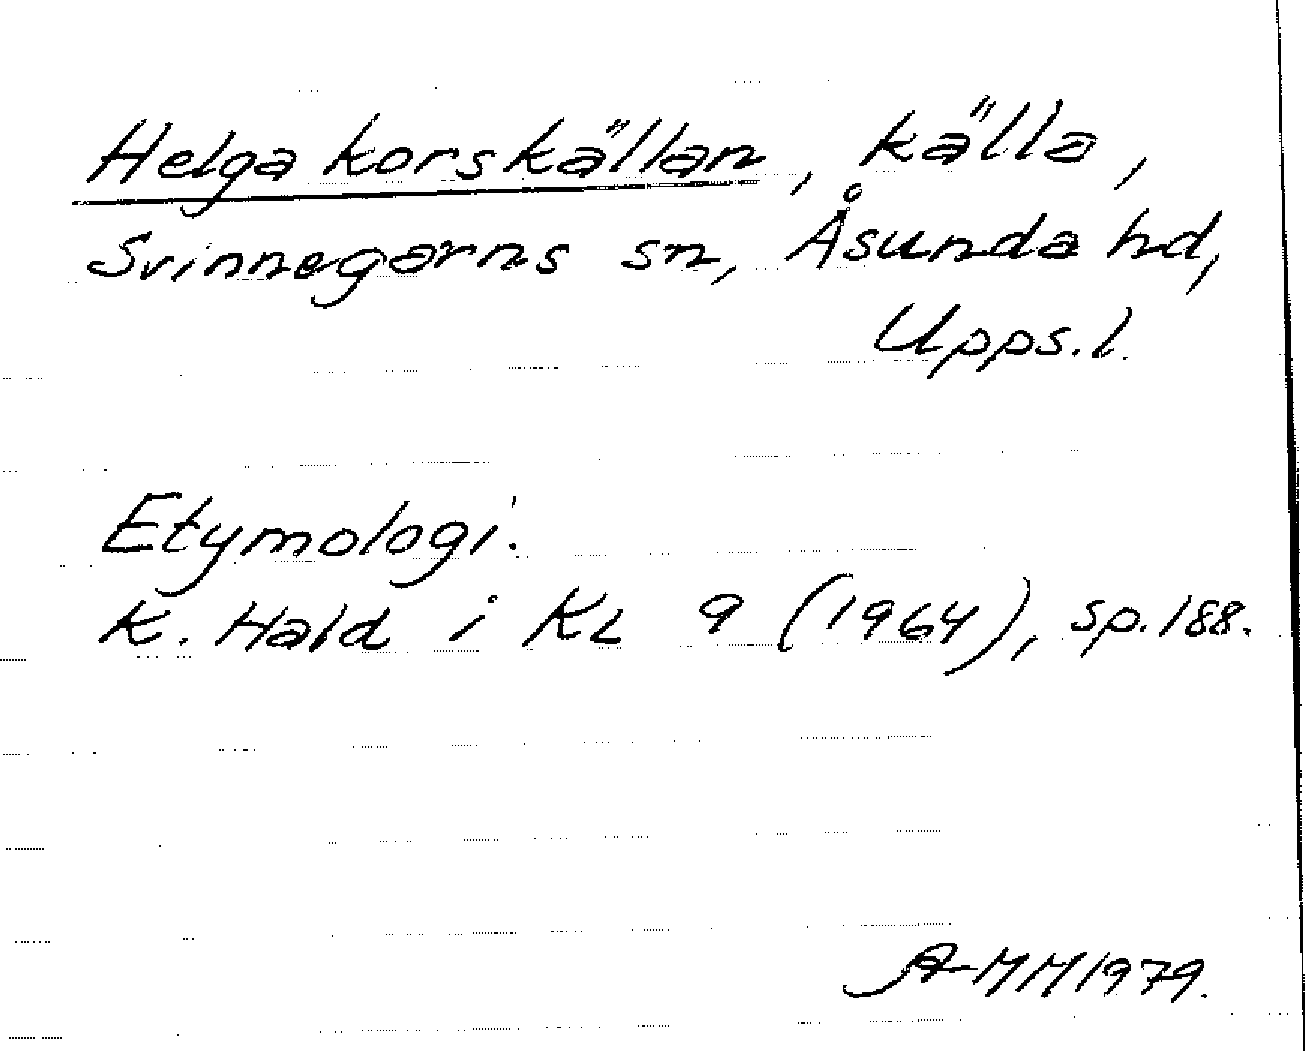 Helga korskällan, källa,
Svinnegarns sn, Åsunda hd,
Upps.l.
Etymologi:
K. Hald i KL 9 (1964), sp.188.
A-MM 1979.